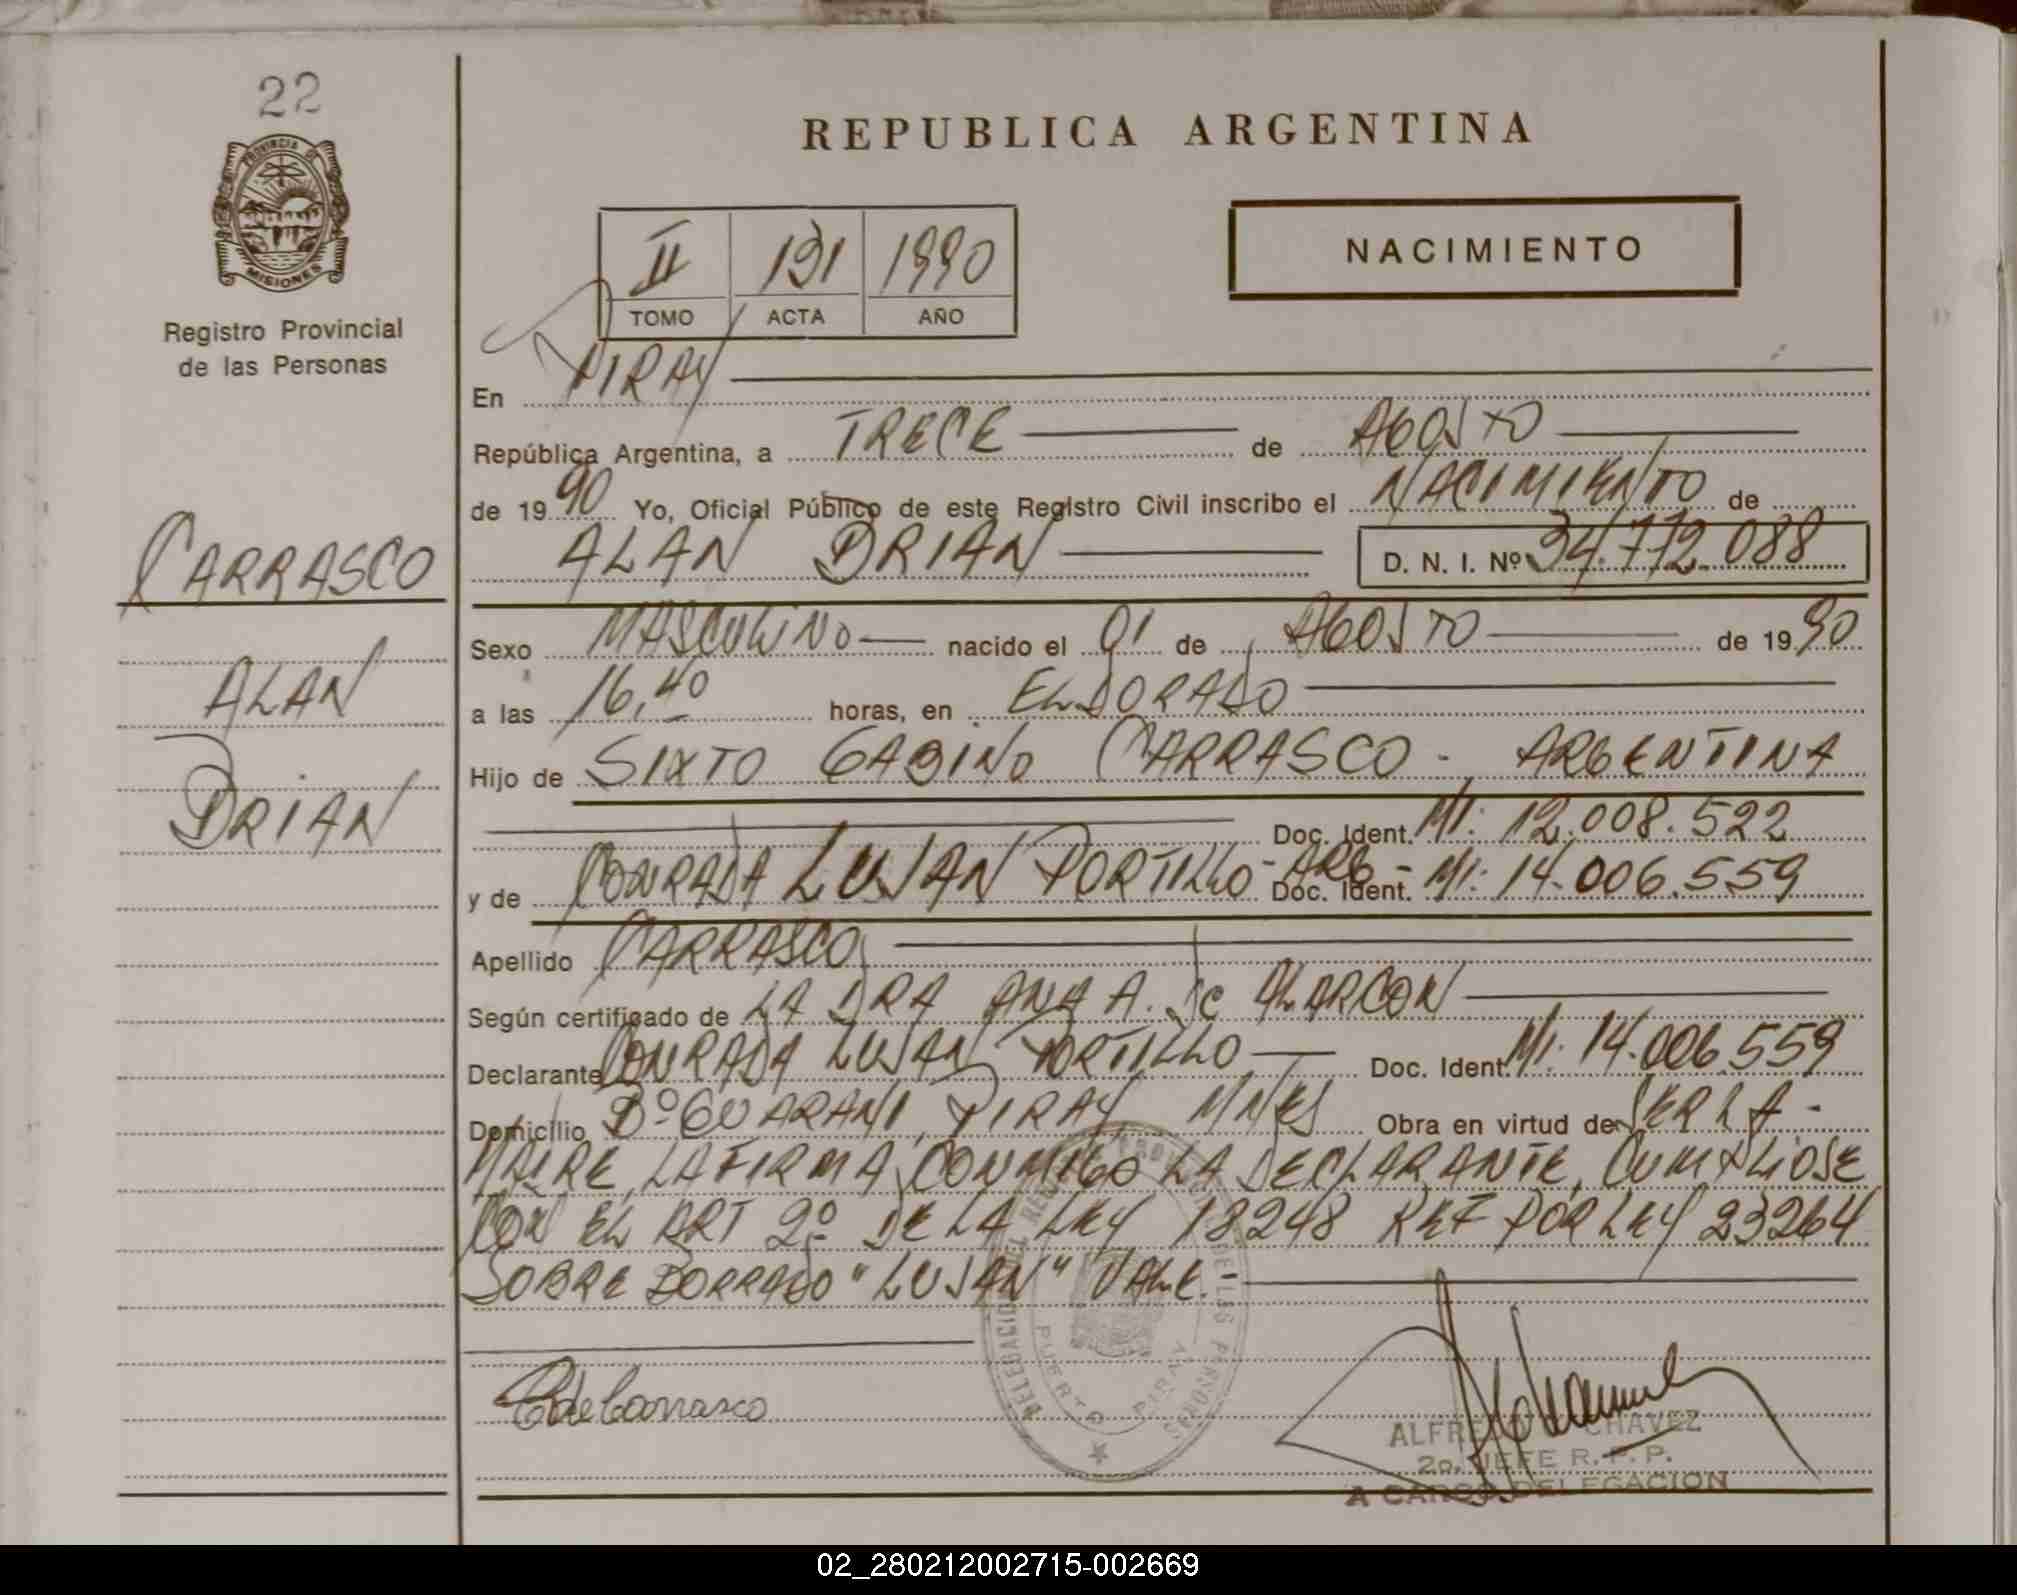 22
PROVINCIA DE
MISIONES
Registro Provincial
de las Personas
CARRASCO
ALAN
BRIAN
REPUBLICA ARGENTINA
II 131 1990
TOMO ACTA AÑO
NACIMIENTO
En PIRAY
República Argentina, a TRECE de AGOSTO
de 1990 Yo, Oficial Público de este Registro Civil inscribo el NACIMIENTO de
ALAN BRIAN D. N. I. Nº 34.772.088
Sexo MASCULINO nacido el 01 de AGOSTO de 1990
a las 16,40 horas, en ELDORADO
Hijo de SIXTO GABINO CARRASCO - ARGENTINA
Doc. Ident. MI: 12.008.522
y de CONRADA LUJAN PORTILLO - ARG - Doc. Ident. MI: 14.006.559
Apellido CARRASCO
Según certificado de LA DRA ANA A. de ALARCON
Declarante CONRADA LUJAN PORTILLO Doc. Ident. MI. 14.006.559
Domicilio Bº GUARANI, PIRAY, MNES Obra en virtud de SER LA -
MADRE, LA FIRMA CONMIGO LA DECLARANTE, CUMPLIOSE
CON EL ART 2º DE LA LEY 18248 REF POR LEY 23264
SOBRE BORRADO "LUJAN" VALE.-
C de Carrasco
DELEGACION DEL REGISTRO PROVINCIAL DE LAS PERSONAS
PUERTO PIRAY
ALFREDO CHAVEZ
2o. JEFE R. P. P.
A CARGO DELEGACION
02_280212002715-002669